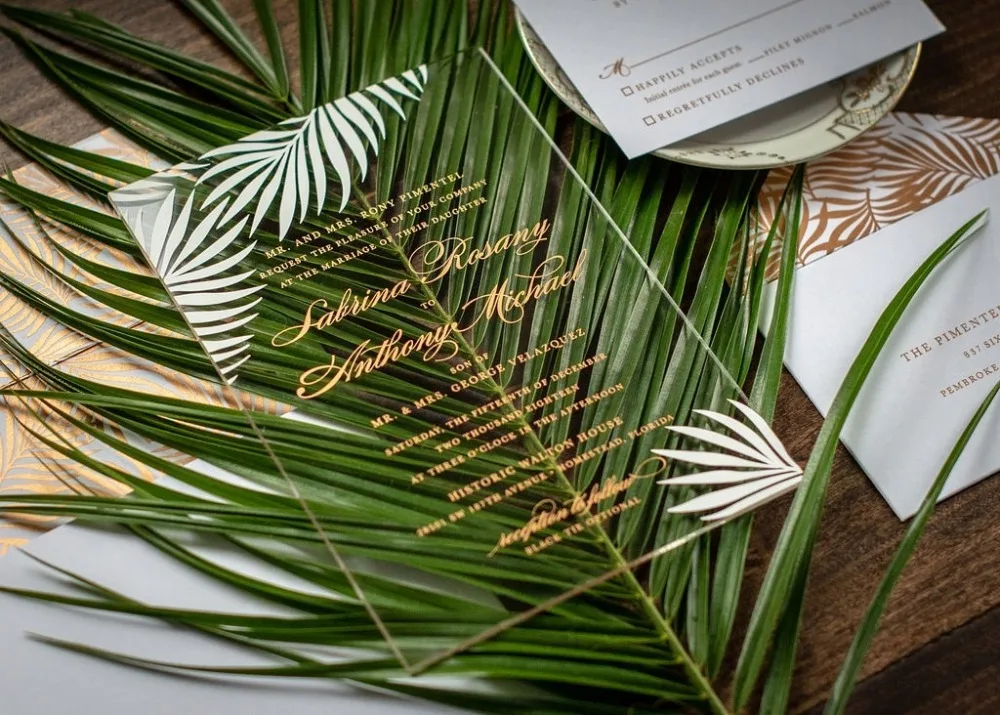 MR. AND MRS. RONY PIMENTEL
REQUEST THE PLEASURE OF YOUR COMPANY
AT THE MARRIAGE OF THEIR DAUGHTER
Sabrina Rosany
TO
Anthony Michael
SON OF
MR. & MRS. GEORGE VELAZQUEZ
SATURDAY, THE FIFTEENTH OF DECEMBER
TWO THOUSAND EIGHTEEN
AT THREE O'CLOCK IN THE AFTERNOON
HISTORIC WALTON HOUSE
SW 187TH AVENUE HOMESTEAD, FLORIDA
reception to follow
BLACK TIE OPTIONAL
M
HAPPILY ACCEPTS
Initial entrée for each guest. FILET MIGNON SALMON
REGRETFULLY DECLINES
THE PIMENTEL
PEMBROKE